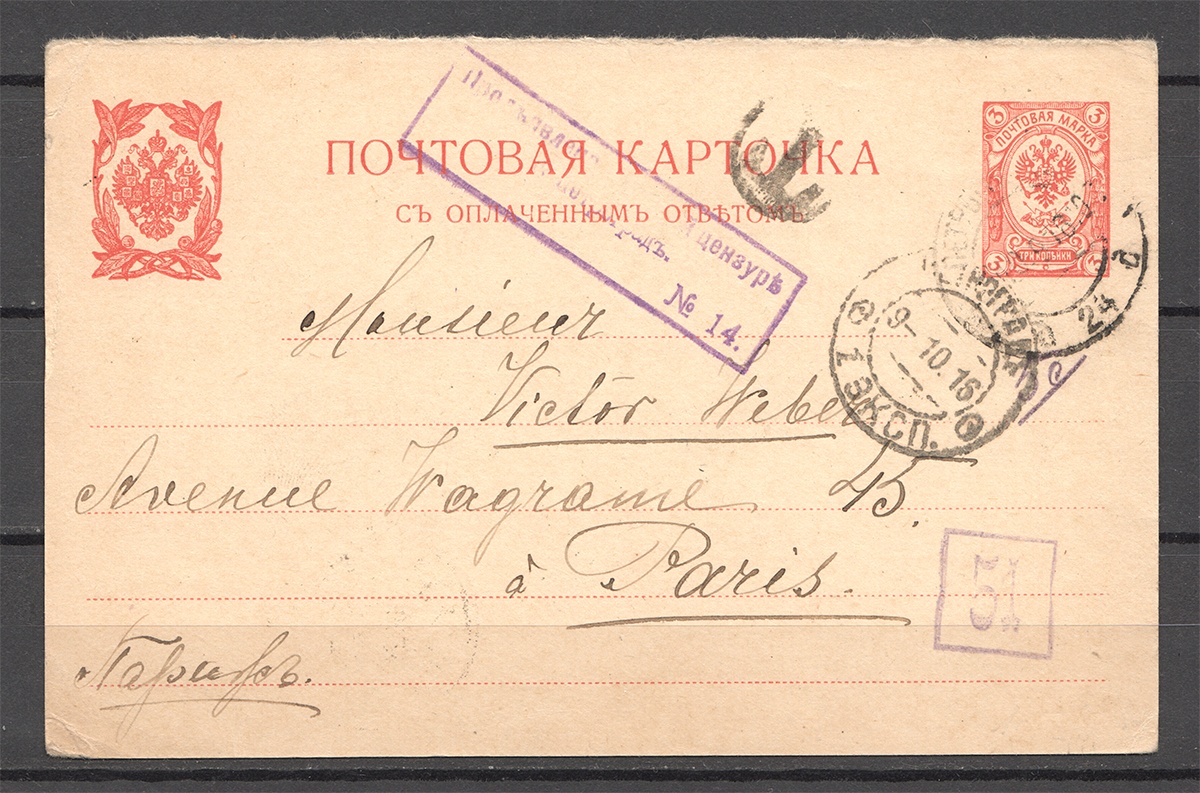 ПОЧТОВАЯ КАРТОЧКА
СЪ ОПЛАЧЕННЫМЪ ОТВѢТОМЪ
3 3
ПОЧТОВАЯ МАРКА
3 3
ТРИ КОПѢЙКИ
цензурѣ
№ 14.
Т
24
9 10.16
1 ЭКСП.
Monsieur
Victor Weber
Avenue Wagrame 45.
à Paris.
51
Парижъ.